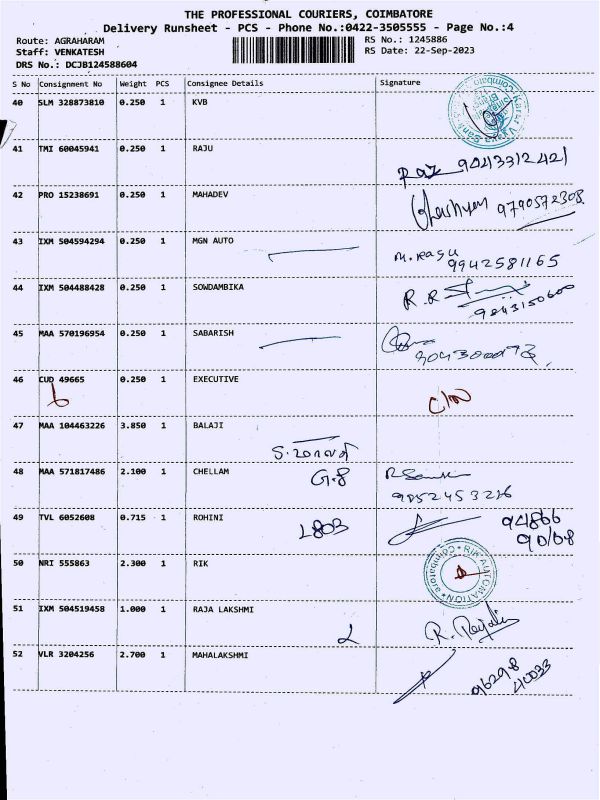 THE PROFESSIONAL COURIERS, COIMBATORE
Delivery Runsheet - PCS - Phone No.:0422-3505555 - Page No.:4
Route: AGRAHARAM RS No.: 1245886
Staff: VENKATESH RS Date: 22-Sep-2023
DRS No.: DCJB124588604
S No Consignment No Weight PCS Consignee Details Signature
40 SLM 328873810 0.250 1 KVB
41 TMI 60045941 0.250 1 RAJU
9043312421
42 PRO 15238691 0.250 1 MAHADEV
9790572308
43 IXM 504594294 0.250 1 MGN AUTO
M. Ragu
9942581165
44 IXM 504488428 0.250 1 SOWDAMBIKA
9843150600
45 MAA 570196954 0.250 1 SABARISH
46 CUD 49665 0.250 1 EXECUTIVE
47 MAA 104463226 3.850 1 BALAJI
48 MAA 571817486 2.100 1 CHELLAM
49 TVL 6052608 0.715 1 ROHINI
50 NRI 555863 2.300 1 RIK
RIK AUTOMATION
Coimbatore
51 IXM 504519458 1.000 1 RAJA LAKSHMI
52 VLR 3204256 2.700 1 MAHALAKSHMI
96298
40033